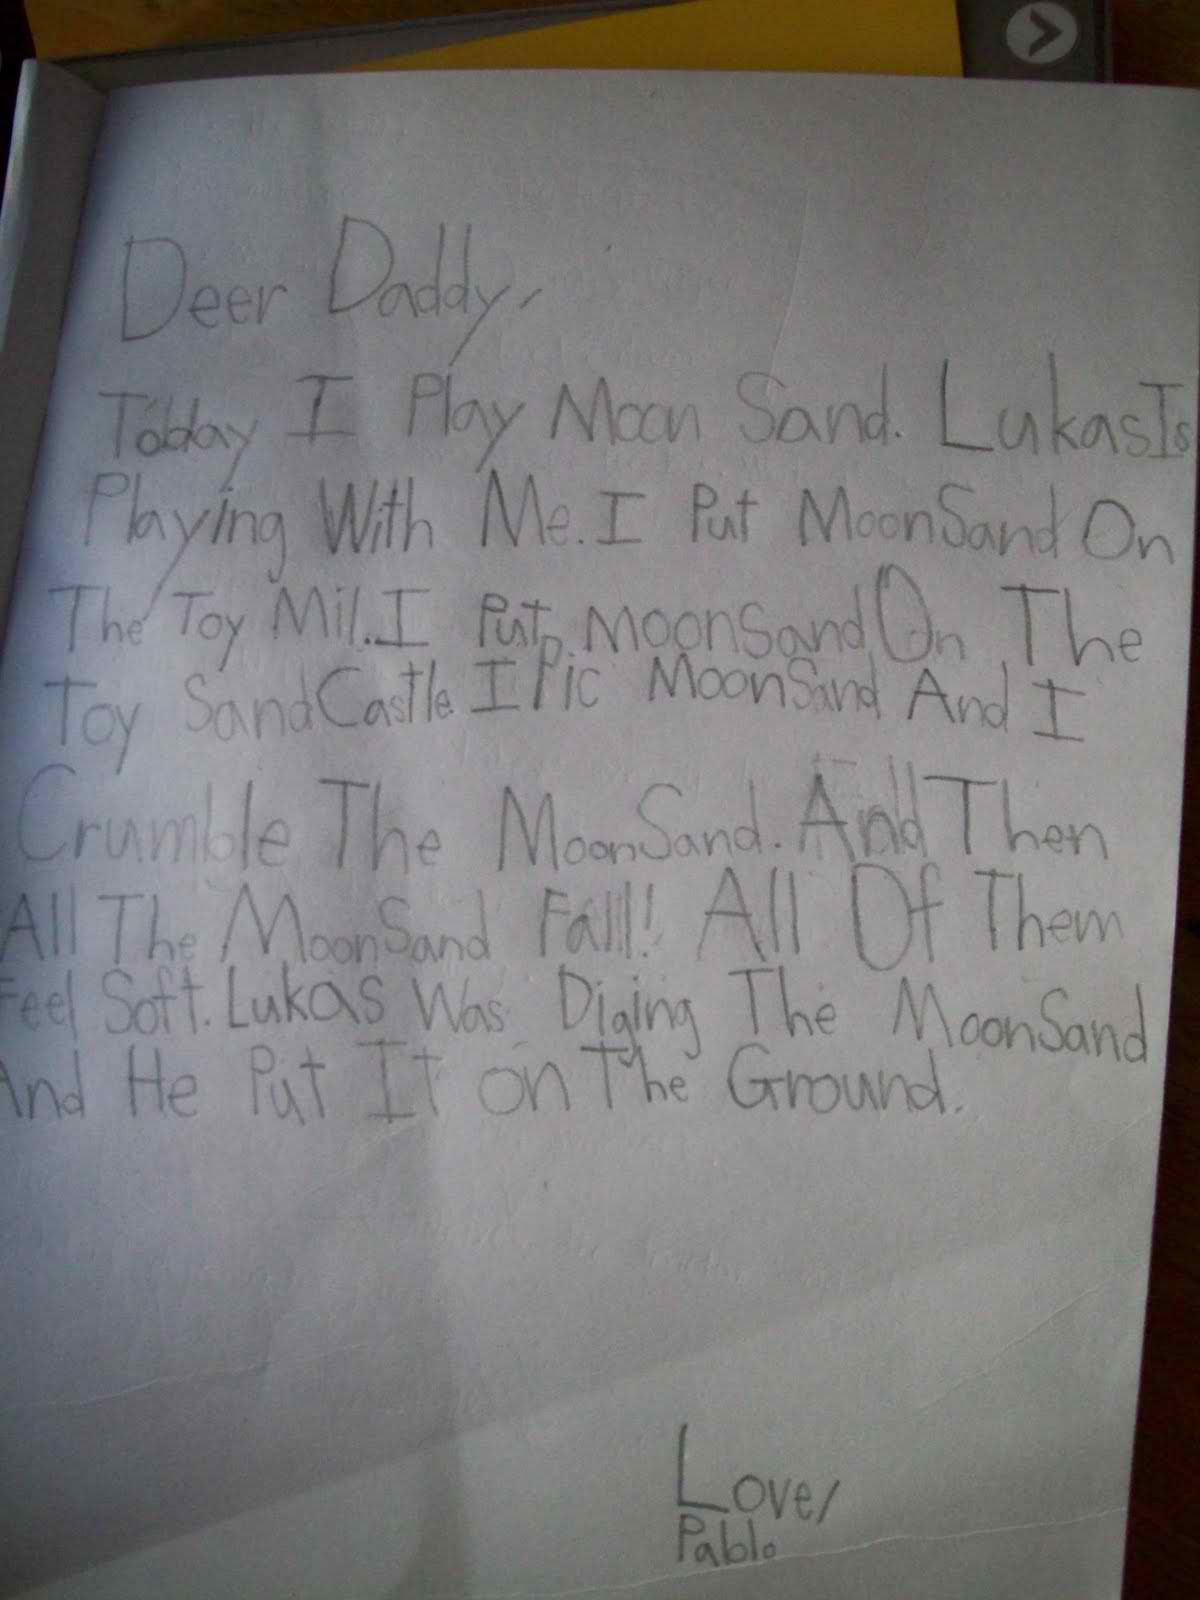 Deer Daddy,
Today I Play Moon Sand. Lukas Is
Playing With Me. I Put MoonSand On
The Toy Mil. I Put MoonSand On The
Toy SandCastle. I Pic MoonSand And I
Crumble The MoonSand. And Then
All The MoonSand Fall!! All Of Them
Feel Soft. Lukas Was Diging The MoonSand
And He Put It on The Ground.
Love,
Pablo